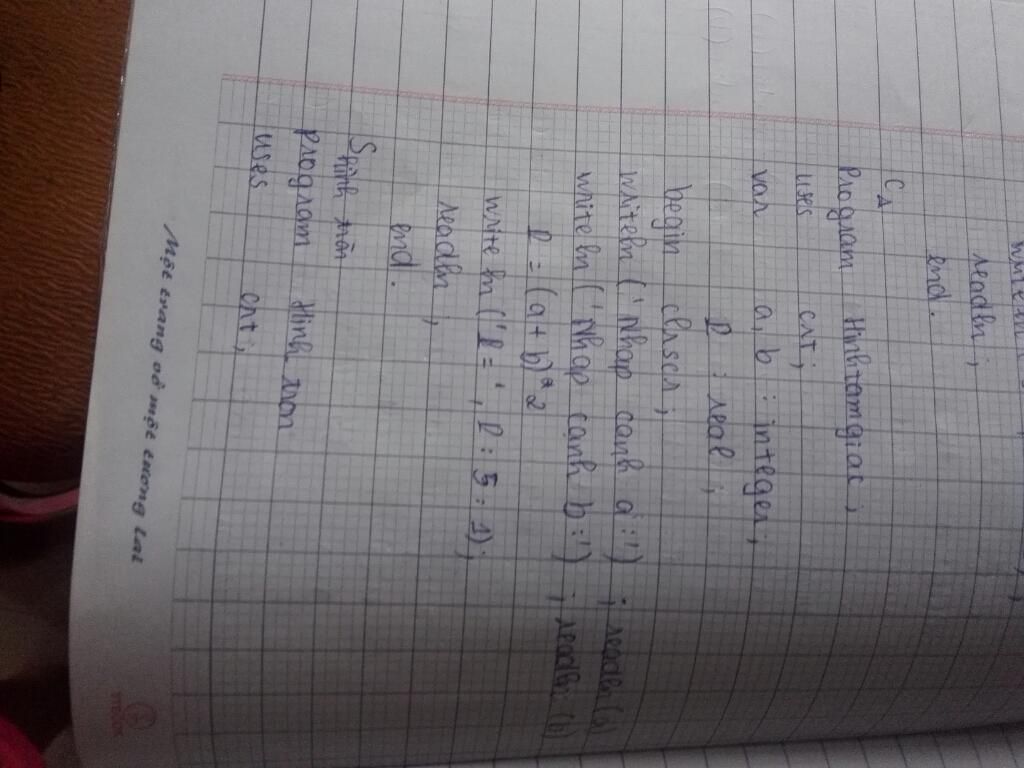 readln ;
end.
C∆
Program Hinhtamgiac ;
uses crt ;
var a, b : integer ;
P : real ;
begin clrscr ;
writeln (' Nhap canh a :') ; readln (a)
writeln (' Nhap canh b :') ; readln (b)
P = (a + b) * 2
write ln (' P = ' , P : 5 : 1) ;
readln ;
end.
S hình tròn
program Hinh tron
uses crt ;